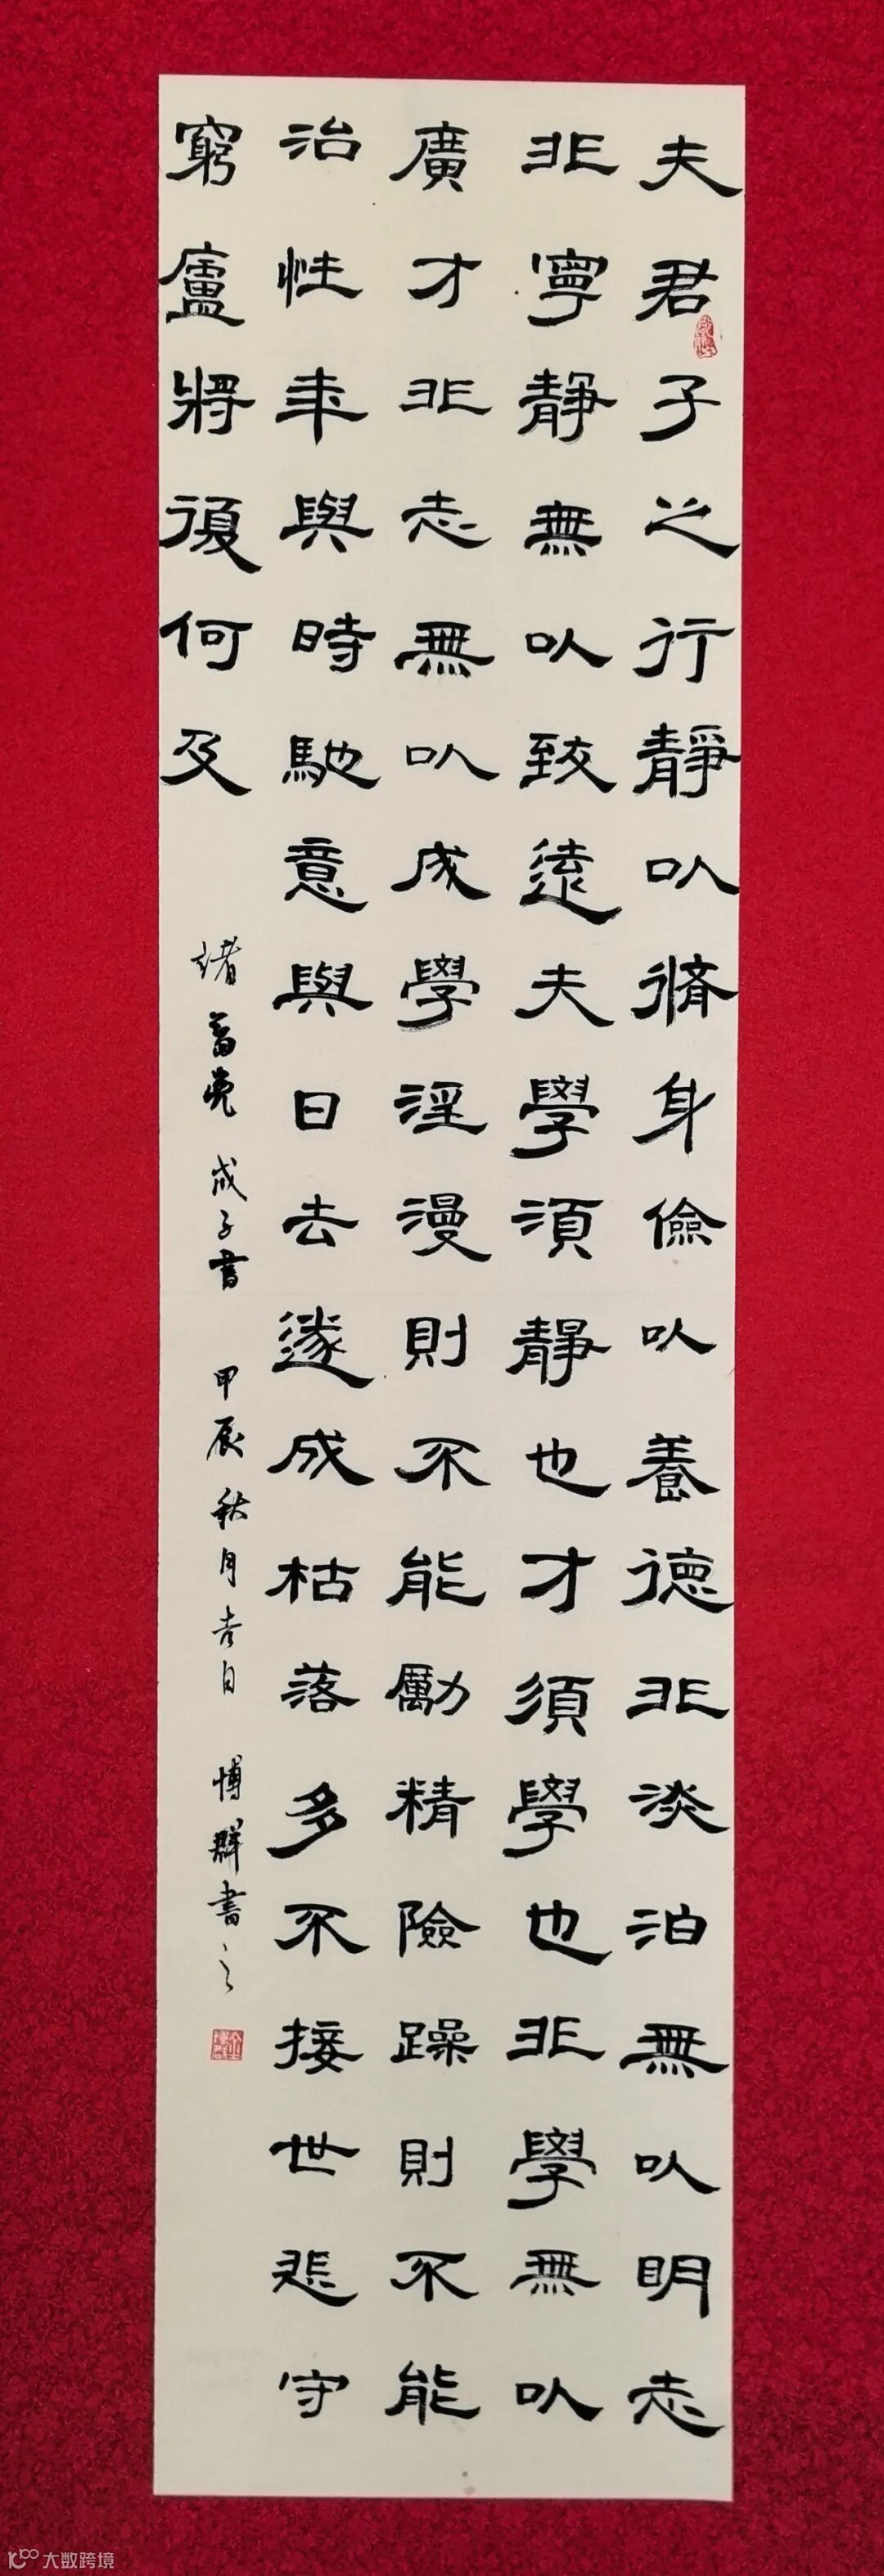 夫君子之行靜以脩身儉以養德非淡泊無以明志
非寧靜無以致遠夫學須靜也才須學也非學無以
廣才非志無以成學淫漫則不能勵精險躁則不能
治性年與時馳意與日去遂成枯落多不接世悲守
窮廬將復何及
諸葛亮 戒子書 甲辰秋月吉日 博群書之
大数跨境